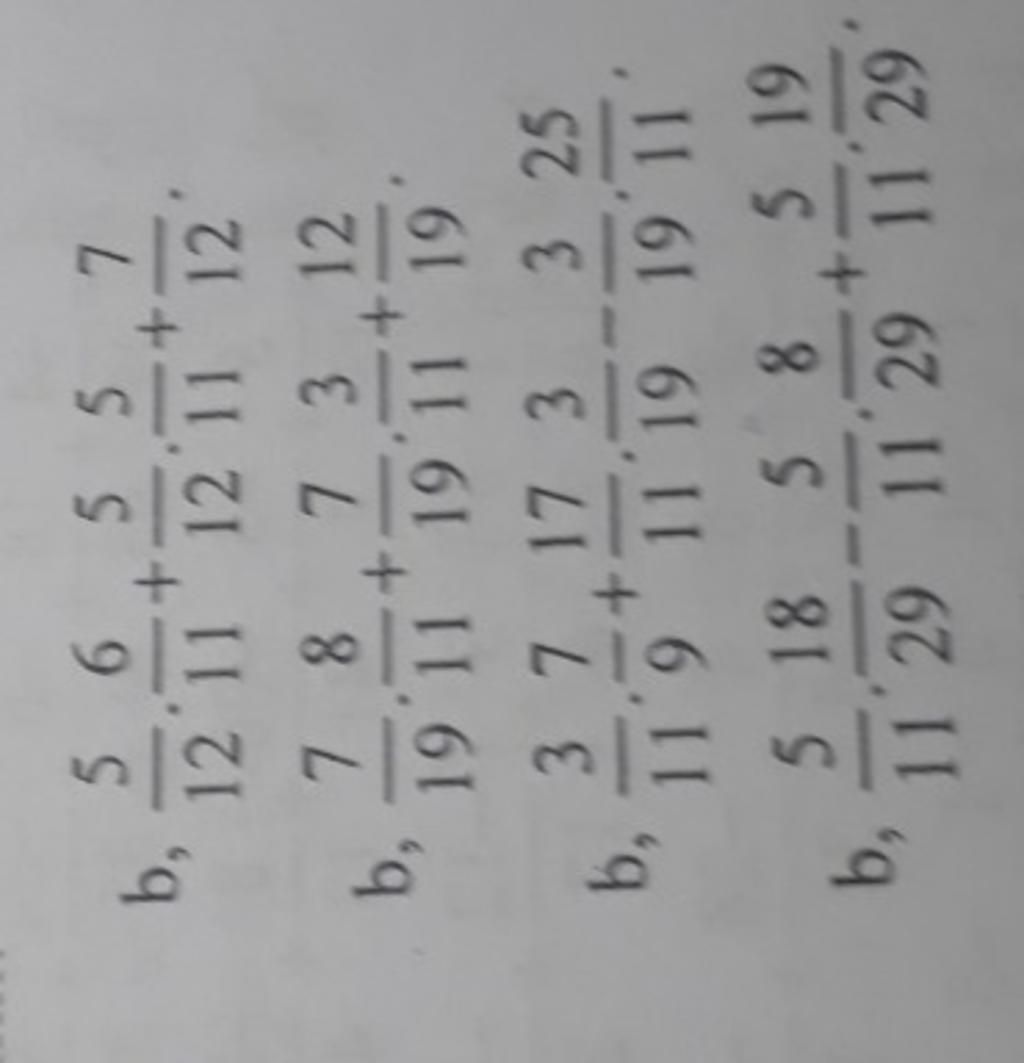 b, 5/12 · 6/11 + 5/12 · 5/11 + 7/12.
b, 7/19 · 8/11 + 7/19 · 3/11 + 12/19.
b, 3/11 · 7/9 + 17/11 · 3/19 - 3/19 · 25/11.
b, 5/11 · 18/29 - 5/11 · 8/29 + 5/11 · 19/29.